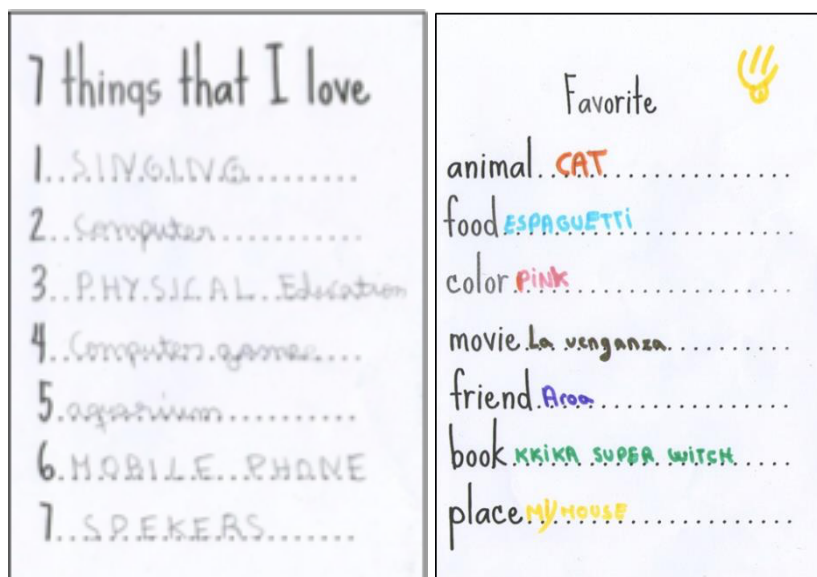 7 things that I love
1..SINGING.........
2..Computer...........
3..PHYSICAL..Education
4..Computer.games....
5.agarium..........
6.MOBILE..PHONE
7..SPEKERS.......
Favorite
animal..CAT...................
food ESPAGUETTi................
color.PiNK........................
movie.La venganza.............
friend.Aroa.....................
book.KKiKA SUPER WiTCH......
place MY HOUSE................